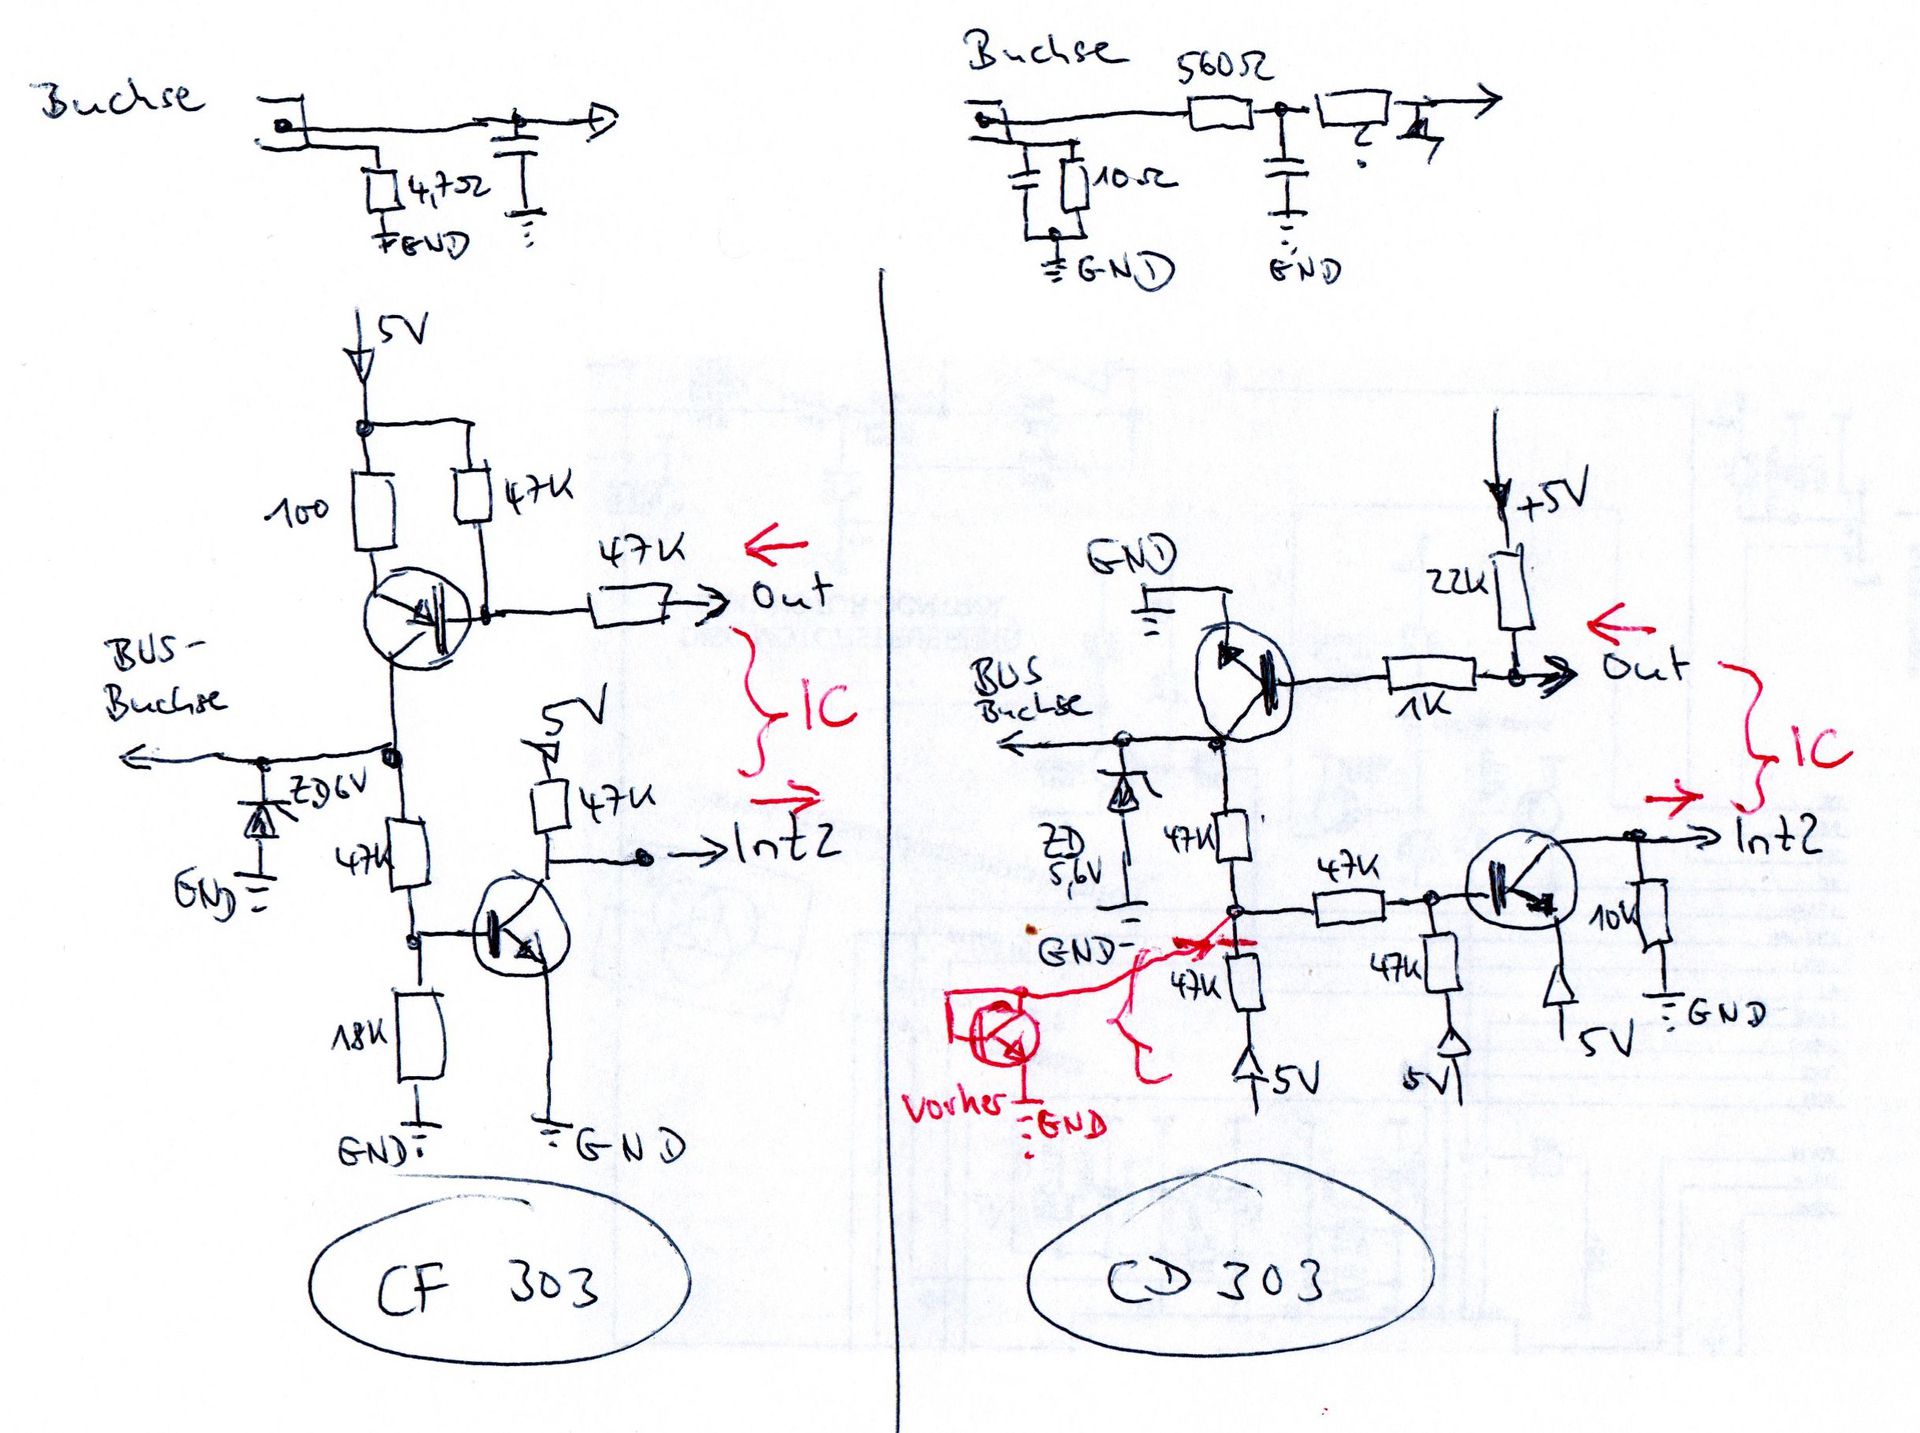 Buchse
4,7Ω
GND
5V
100
47K
47K
Out
BUS-
Buchse
IC
ZD6V
5V
47K
47K
Int2
GND
18K
GND
GND
CF 303
Buchse
560Ω
?
10Ω
GND
GND
+5V
GND
22K
Out
BUS
Buchse
1K
IC
ZD
5,6V
47K
47K
Int2
10K
GND
47K
47K
GND
5V
5V
5V
vorher
GND
CD 303